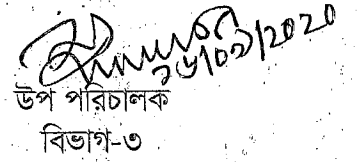 ১৬/০৯/২০২০
উপ পরিচালক
বিভাগ-৩